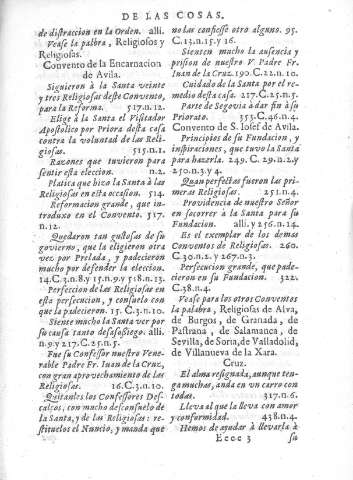 DE LAS COSAS.
de distraccion en la Orden. alli.
Vease la palbra, Religiosos y
Religiosas.
Convento de la Encarnacion
de Avila.
Siguieron à la Santa veinte
y tres Religiosas deste Convento,
para la Reforma. 517.n.12.
Elige à la Santa el Visitador
Apostolico por Priora desta casa
contra la voluntad de las Reli-
giosas. 515.n.1.
Razones que tuvieron para
sentir esta eleccion. n.2.
Platica que hizo la Santa à las
Religiosas en esta ocasion. 514.
Reformacion grande, que in-
troduxo en el Convento. 517.
n.12.
Quedaron tan gustosas de su
govierno, que la eligieron otra
vez por Prelada, y padecieron
mucho por defender la eleccion.
14.C.3.n.8.y 15.n.9.y 518.n.13.
Perfeccion de las Religiosas en
esta persecucion, y consuelo con
que la padecieron. 15. C.3.n.10.
Siente mucho la Santa ver por
su causa tanto desasosiego. alli.
n.9.y 217.C.25.n.5.
Fue su Confessor nuestro Vene-
rable Padre Fr. Iuan de la Cruz,
con gran aprovechamiento de las
Religiosas. 16.C.3.n.10.
Quitanles los Confessores Des-
calços, con mucho desconsuelo de
la Santa, y de las Religiosas: re-
stituelos el Nuncio, y manda que
no las confiesse otro alguno. 95.
C.13.n.15.y 16.
Sienten mucho la ausencia y
prision de nuestro V. Padre Fr.
Iuan de la Cruz. 190.C.22.n.10.
Cuidado de la Santa por el re-
medio desta casa. 217.C.25.n.5.
Parte de Segovia à dar fin à su
Priorato. 353.C.46.n.4.
Convento de S. Iosef de Avila.
Principios de su Fundacion, y
inspiraciones, que tuvo la Santa
para hazerla. 249. C. 29.n.2.y
250.n.3.y 4.
Quan perfectas fueron las pri-
meras Religiosas. 251.n.4.
Providencia de nuestro Señor
en socorrer à la Santa para su
Fundacion. alli.y 256.n.14.
Es el exemplar de los demas
Conventos de Religiosas. 260.
C.30.n.2. y 267.n.3.
Persecucion grande, que pade-
cieron en su Fundacion. 322.
C.38.n.4.
Vease para los otros Conventos
la palabra, Religiosas de Alva,
de Burgos, de Granada, de
Pastrana, de Salamanca, de
Sevilla, de Soria, de Valladolid,
de Villanueva de la Xara.
Cruz.
El alma resignada, aunque ten-
ga muchas, anda en un carro con
todas. 317.n.6.
Lleva al que la lleva con amor
y conformidad. 438.n.4.
Hemos de ayudar à llevarla à
Eccc 3 su